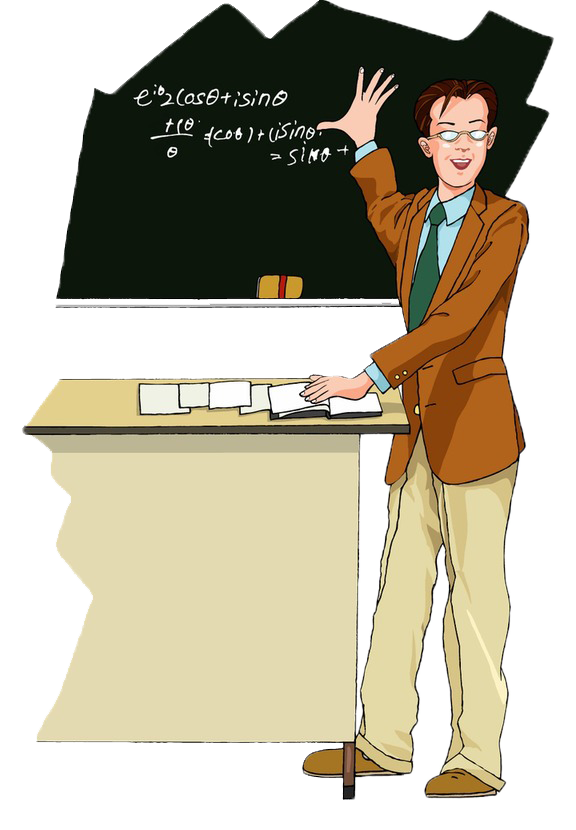 e^{iθ}2 cosθ+isinθ
+(θ. (cosθ)+(isinθ.
θ
= sinθ +